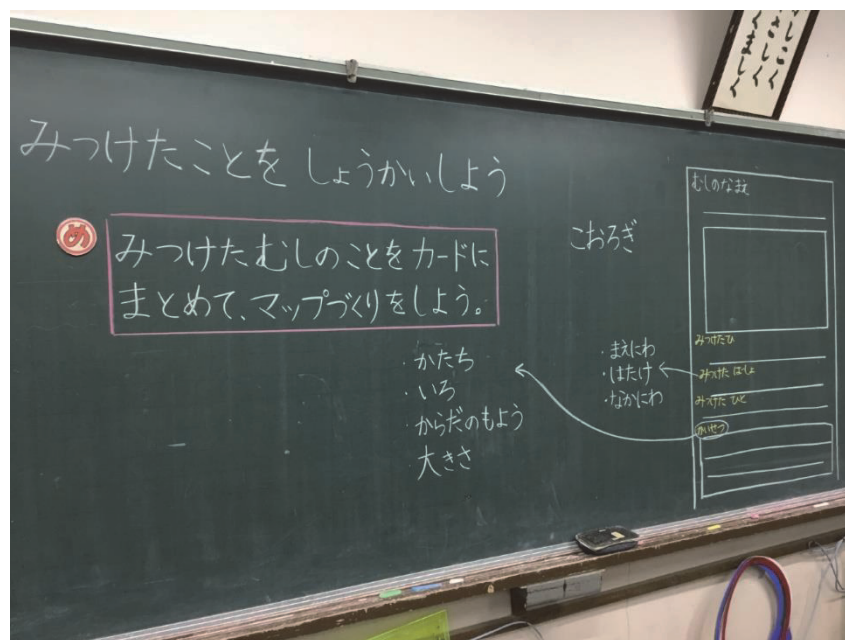 みつけたことを しょうかいしよう
め
みつけたむしのことをカードに
まとめて、マップづくりをしよう。
・かたち
・いろ
・からだのもよう
・大きさ
こおろぎ
・まえにわ
・はたけ
・なかにわ
むしのなまえ
みつけたひ
みつけた ばしょ
みつけた ひと
かいせつ